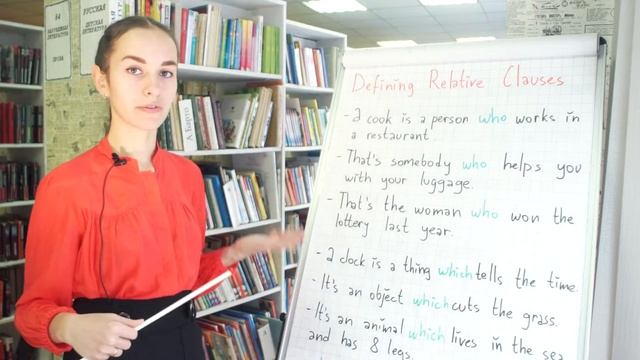 84
ЗАРУБЕЖНАЯ
ЛИТЕРАТУРА
ПРОЗА
РУССКАЯ
ДЕТСКАЯ
ЛИТЕРАТУРА
А.Барто
Defining Relative Clauses
- A cook is a person who works in
a restaurant.
- That's somebody who helps you
with your luggage.
- That's the woman who won the
lottery last year.
- A clock is a thing which tells the time.
- It's an object which cuts the grass.
- It's an animal which lives in the sea
and has 8 legs.